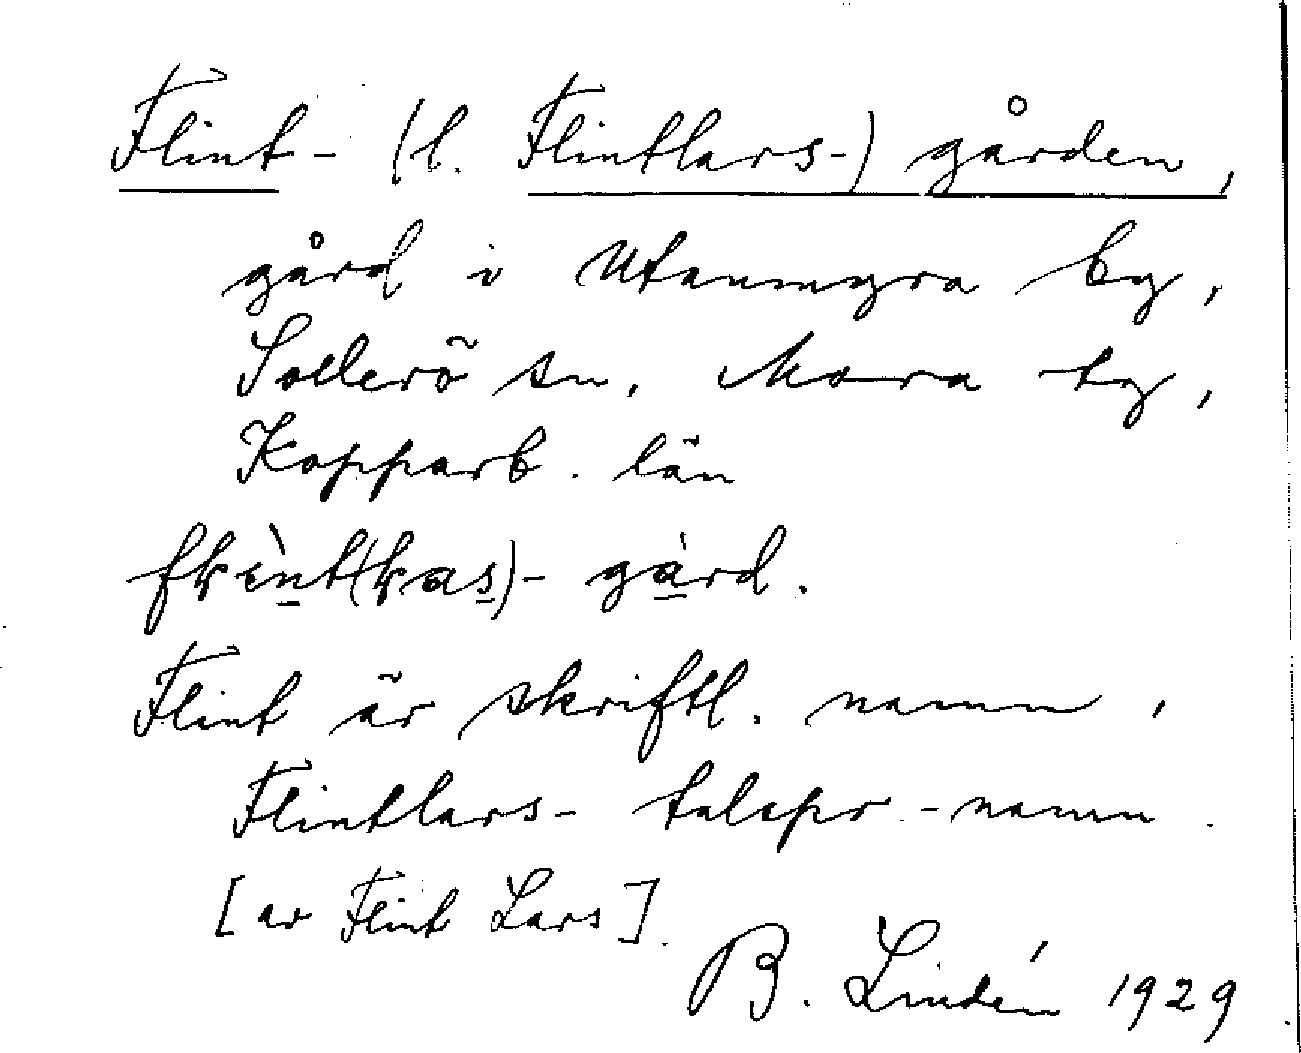 Flint- (l. Flintlars-) gården,
gård i Utanmyra by,
Sollerö sn, Mora tg,
Kopparb. län
flìnt(las)- gàrd.
Flint är skriftl. namn,
Flintlars- talspr.-namn.
[av Flint Lars].
B. Lindén 1929